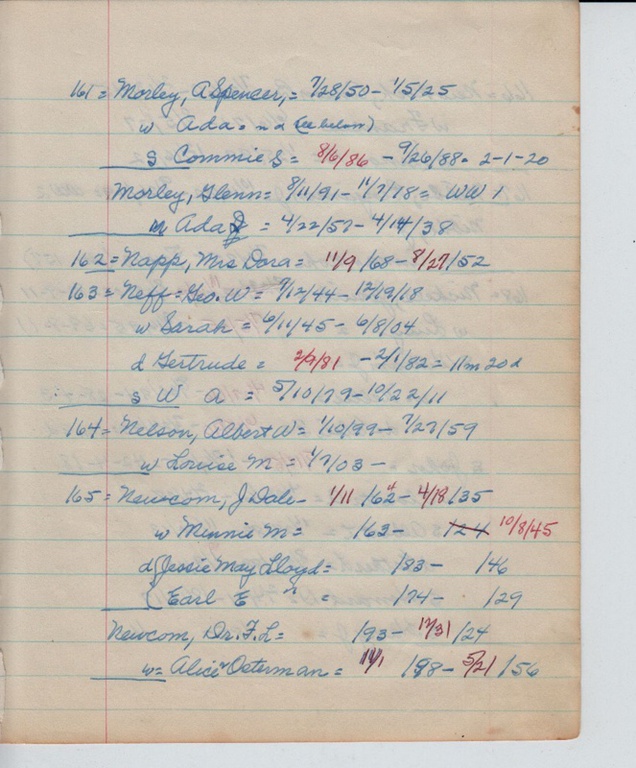 161 = Morley, A Spencer, = 7/28/50 - 1/5/25
w Ada = nd (see below)
s Commie S = 8/6/86 - 9/26/88 = 2-1-20
Morley, Glenn = 8/11/91 - 11/7/18 = WW 1
m Ada J = 4/22/57 - 4/14/38
162 = Napp, Mrs Dora = 11/9/68 - 8/27/52
163 = Neff = Geo. W = 7/12/44 - 12/19/18
w Sarah = 6/11/45 - 6/8/04
d Gertrude = 2/9/81 - 2/1/82 = 11m 20d
s W A = 5/10/79 - 10/22/11
164 = Nelson, Albert W = 1/10/99 - 7/27/59
w Louise M = 4/7/03 -
165 = Newcom, J Dale - 1/11/62 - 4/18/35
w Minnie M = /63 - /24 10/8/45
d (Jessie May Lloyd = /83 - /46
(Earl E " = /74 - /29
Newcom, Dr. F. L = /93 - 12/31/24
w = Alice Osterman = 11/1/98 - 5/21/56